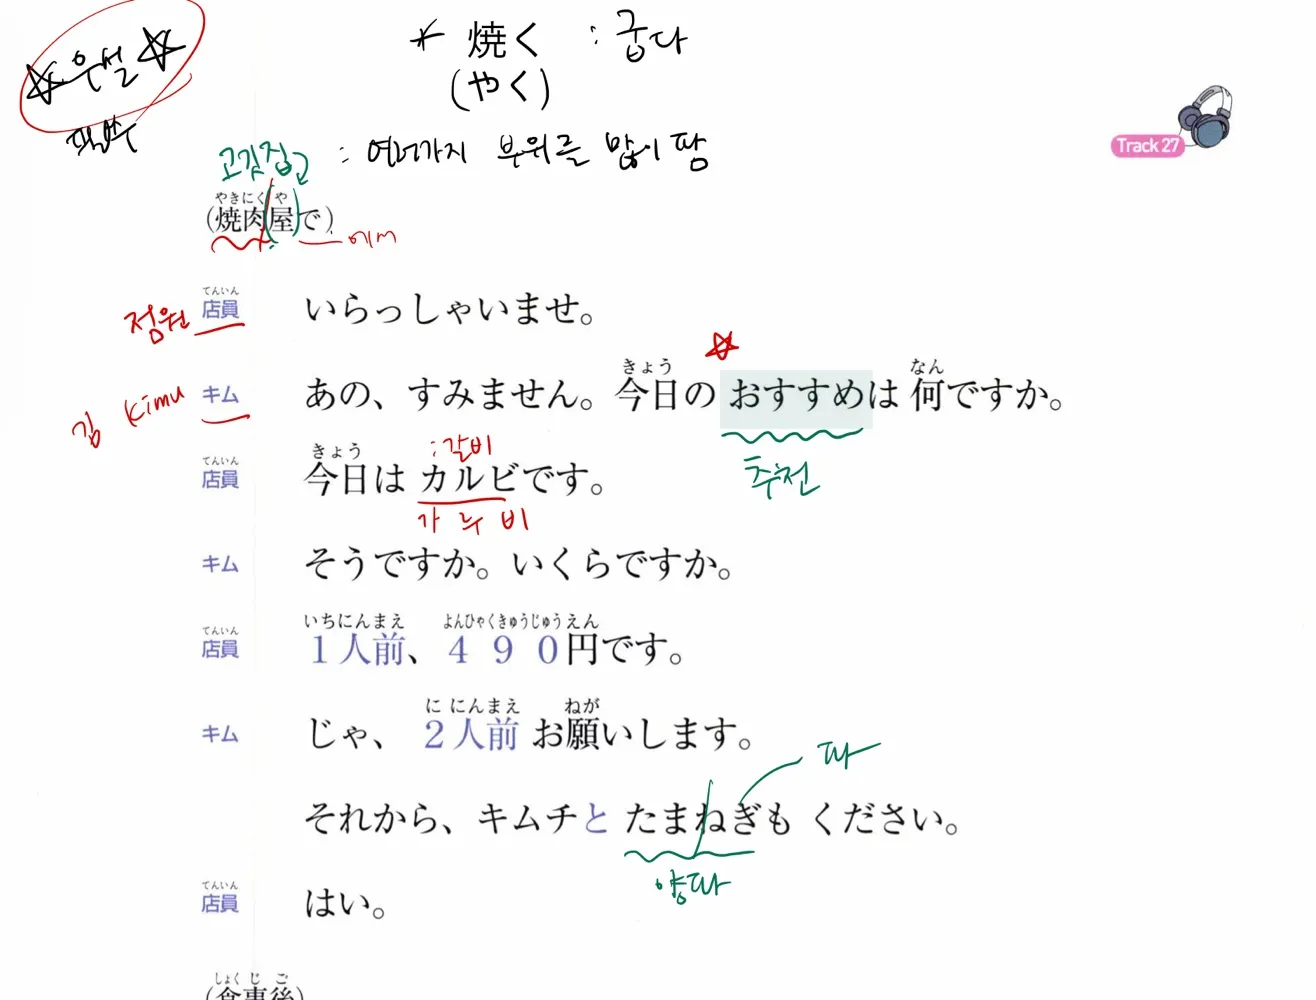 * 焼く : 굽다
(やく)
☆우설☆
필수
Track 27
고깃집 : 여러가지 부위를 많이 팜
やきにく や
(焼肉屋で)
에서
てんいん
점원 店員 いらっしゃいませ。
きょう なん
김 Kimu キム あの、すみません。今日の おすすめは 何ですか。
추천
きょう :갈비
てんいん
店員 今日は カルビです。
가 루 비
キム そうですか。いくらですか。
いちにんまえ よんひゃくきゅうじゅうえん
てんいん
店員 1人前、490円です。
に にんまえ ねが
キム じゃ、 2人前 お願いします。
파
それから、キムチと たまねぎも ください。
양파
てんいん
店員 はい。
しょく じ ご
(食事後)